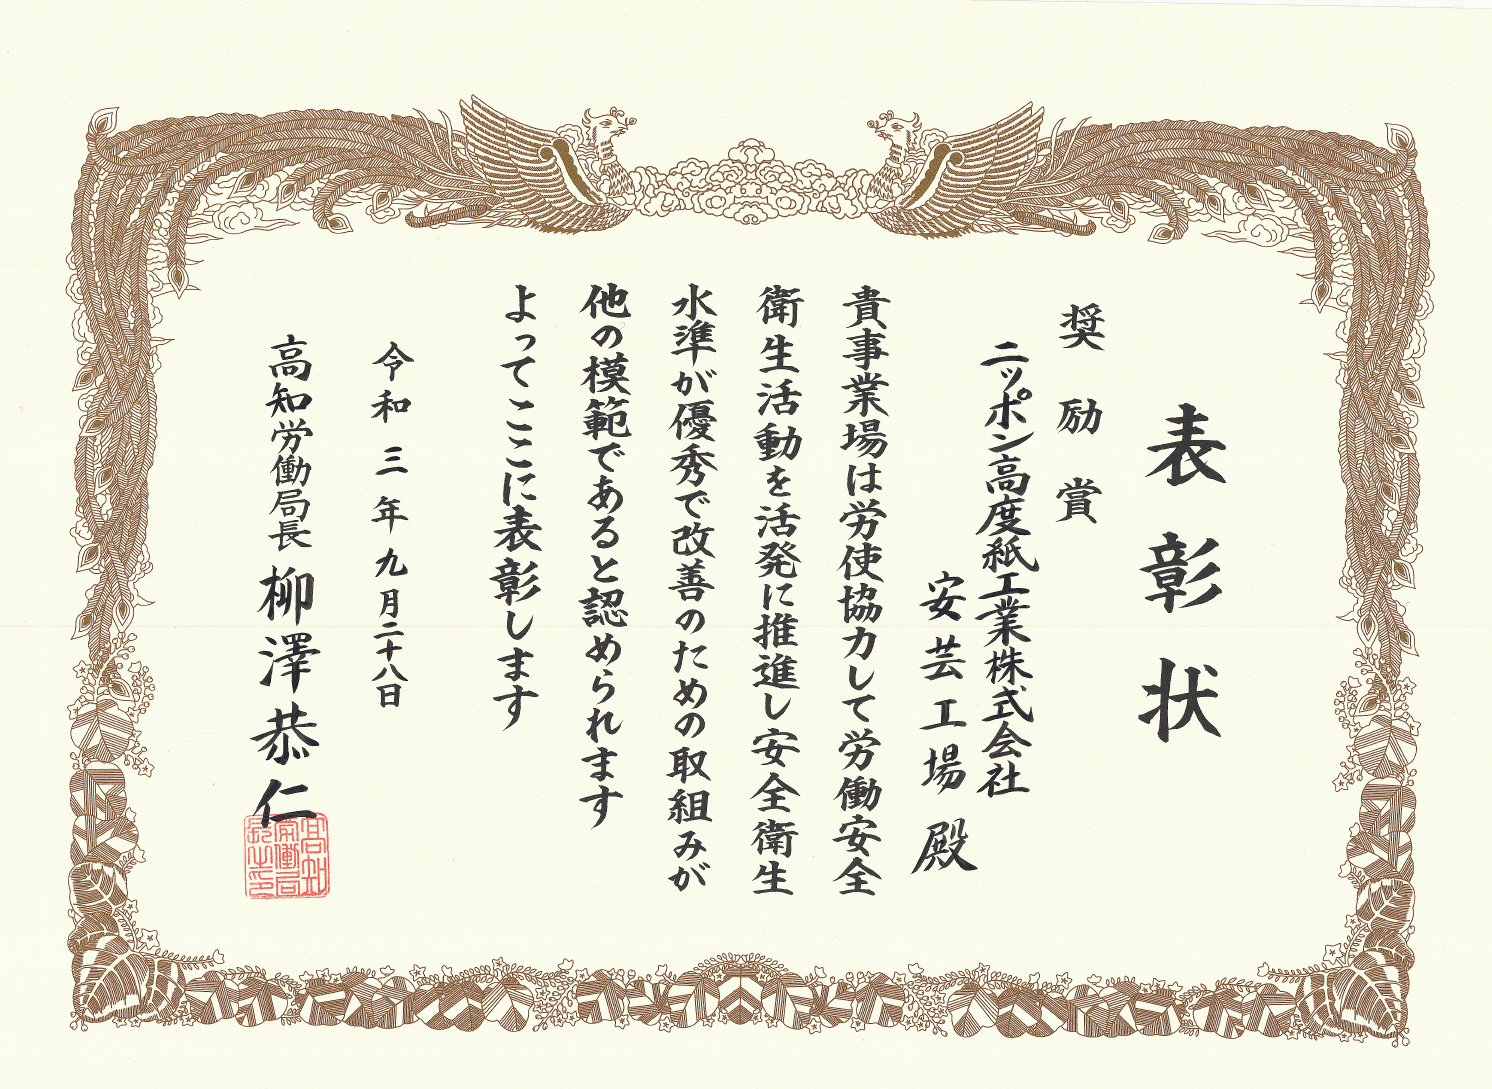 表彰状
奨励賞
ニッポン高度紙工業株式会社
安芸工場殿
貴事業場は労使協力して労働安全
衛生活動を活発に推進し安全衛生
水準が優秀で改善のための取組みが
他の模範であると認められます
よってここに表彰します
令和三年九月二十八日
高知労働局長柳澤恭仁
高知
労働局
長之印